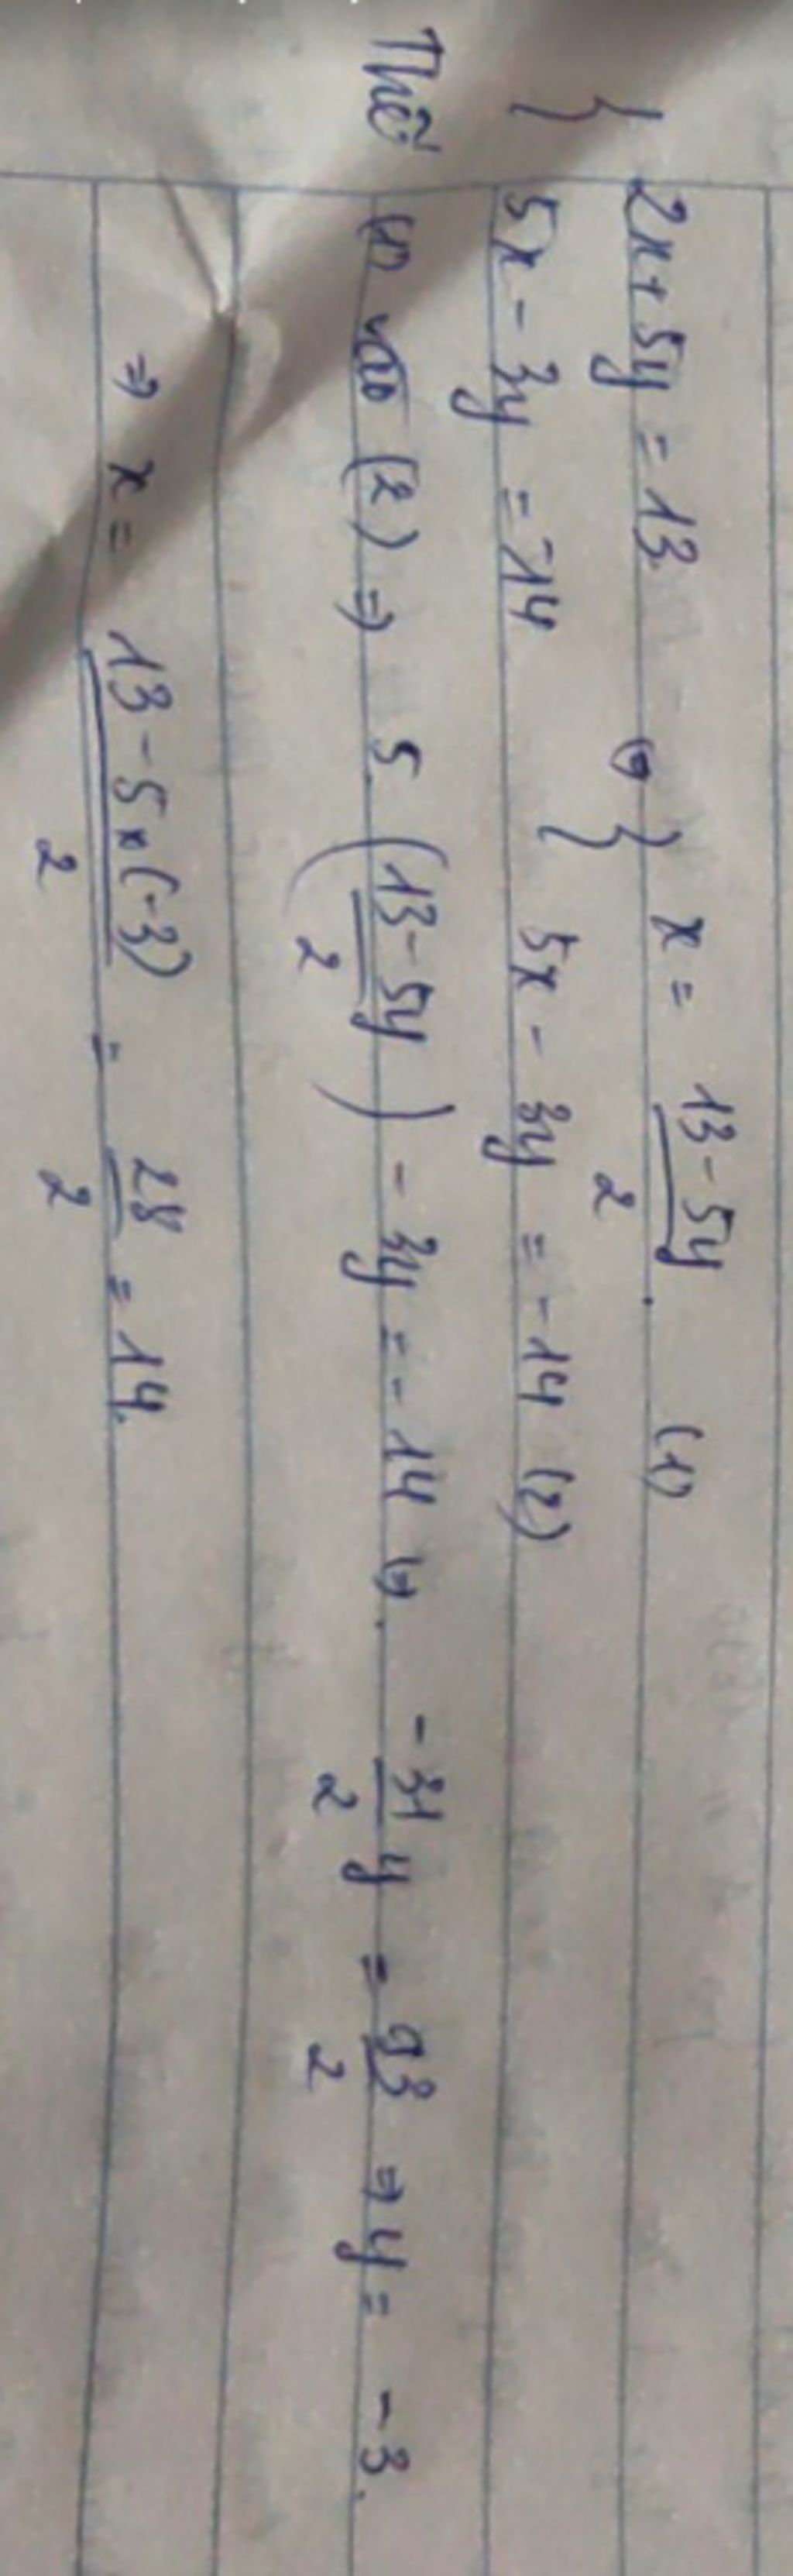 { 2x + 5y = 13 ⇔ { x = (13 - 5y)/2 . (1)
{ 5x - 3y = -14 { 5x - 3y = -14 (2)
Thế (1) vào (2) ⇒ 5. ((13 - 5y)/2) - 3y = -14 ⇔. -31/2 y = 93/2 ⇒ y = -3.
⇒ x = (13 - 5x(-3))/2 = 28/2 = 14.